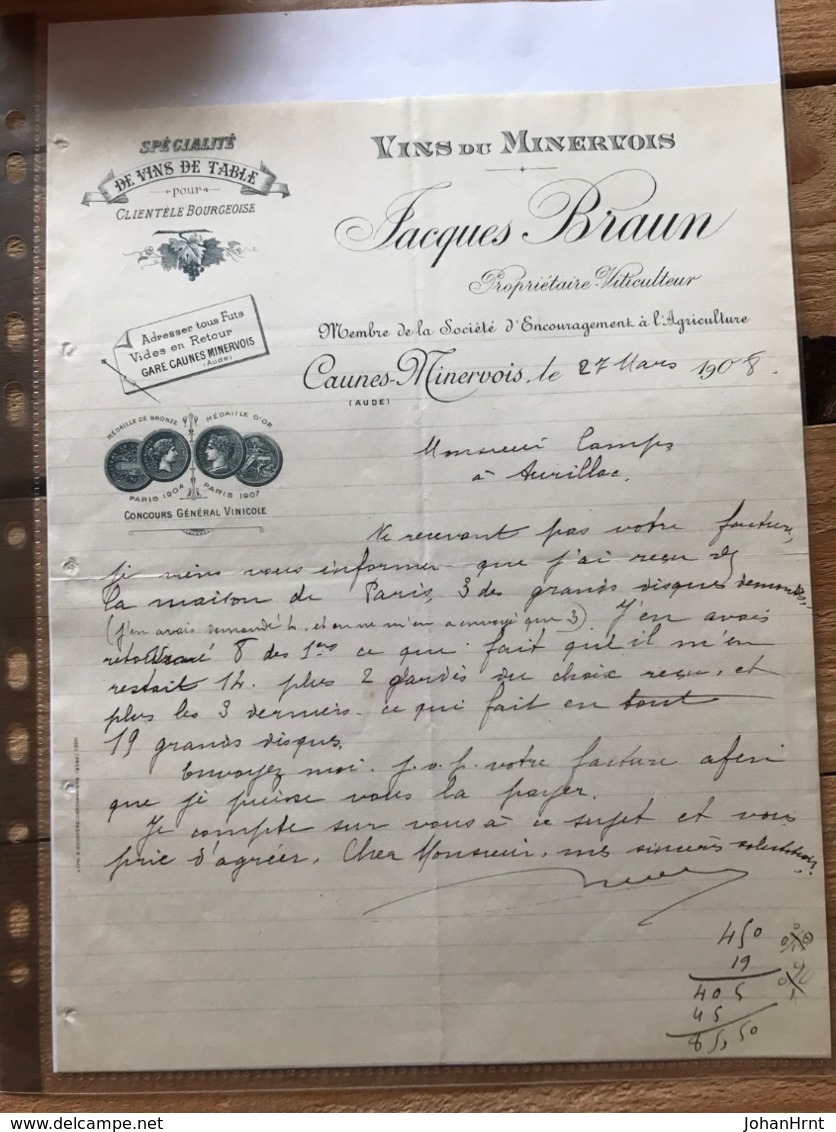 SPÉCIALITÉ
DE VINS DE TABLE
pour
CLIENTÈLE BOURGEOISE
VINS DU MINERVOIS
Jacques Braun
Propriétaire-Viticulteur
Membre de la Société d'Encouragement à l'Agriculture
Adresser tous Futs
Vides en Retour
GARE CAUNES MINERVOIS
(Aude)
Caunes-Minervois, le 27 Mars 1908.
(AUDE)
MÉDAILLE DE BRONZE MÉDAILLE D'OR
PARIS 1904 PARIS 1907
CONCOURS GÉNÉRAL VINICOLE
Monsieur Camps
à Aurillac.
Ne recevant pas votre facture,
je viens vous informer que j'ai reçu de
la maison de Paris, 3 des grands disques demandés.
(J'en avais demandé 4, et on ne m'en a envoyé que 3). J'en avais
8 des 1ers ce que fait qu'il m'en
restait 14. plus 2 gardés du choix reçu, et
plus les 3 derniers ce qui fait en tout
19 grands disques.
Envoyez moi. s.v.p. votre facture afin
que je puisse vous la payer.
Je compte sur vous à ce sujet et vous
prie d'agréer, Cher Monsieur, mes sincères salutations.
450
19
405
45
85,50
JohanHrnt